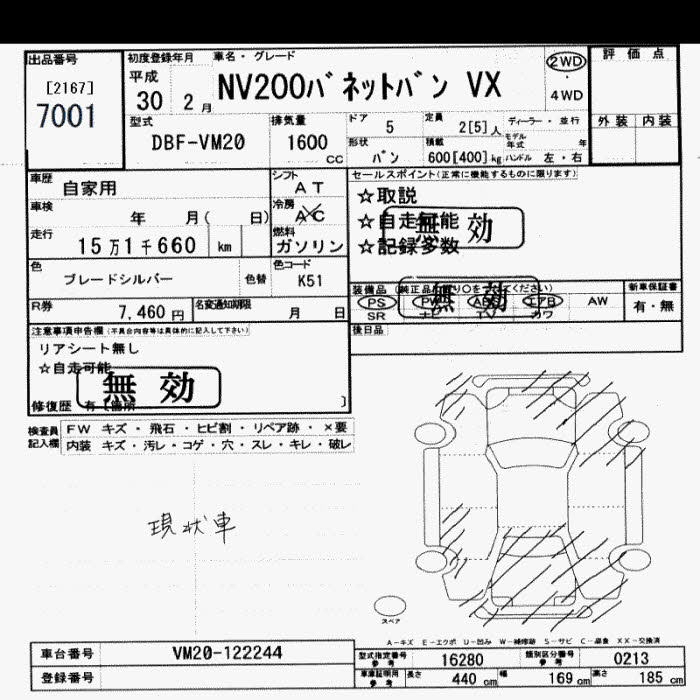 出品番号
[2167]
7001
初度登録年月 車名・グレード
平成
30 2月
NV200バネットバン VX
2WD
・
4WD
評価点
外装 内装
型式
DBF-VM20
排気量
1600
CC
ドア 5
定員 2[5]人
ディーラー・並行
モデル年式 年
形状 バン
積載 600[400]kg
ハンドル 左・右
車歴 自家用
シフト AT
車検 年 月( 日)
冷房 AC
走行 15万1千660 km
燃料 ガソリン
色 ブレードシルバー 色替
色コード K51
R券 7,460円
名変通知期限 月 日
セールスポイント(正常に機能するものに限ります)
☆取説
☆自走可能
☆記録多数
無効
装備品
無効
PS PW ABS エアB AW
SR ナビ TV カワ
新車保証書
有・無
後日品
注意事項申告欄(不具合内容等は具体的に記入して下さい)
リアシート無し
☆自走可能
無効
修復歴 有[箇所 ]
検査員記入欄
FW キズ・飛石・ヒビ割・リペア跡・×要
内装 キズ・汚レ・コゲ・穴・スレ・キレ・破レ
現状車
スペア
A-キズ E-エクボ U-凹み W-補修跡 S-サビ C-腐食 XX-交換済
車台番号 VM20-122244
登録番号
型式指定番号 参考 16280
類別区分番号 参考 0213
車庫証明用 参考 長さ 440cm 幅 169cm 高さ 185cm